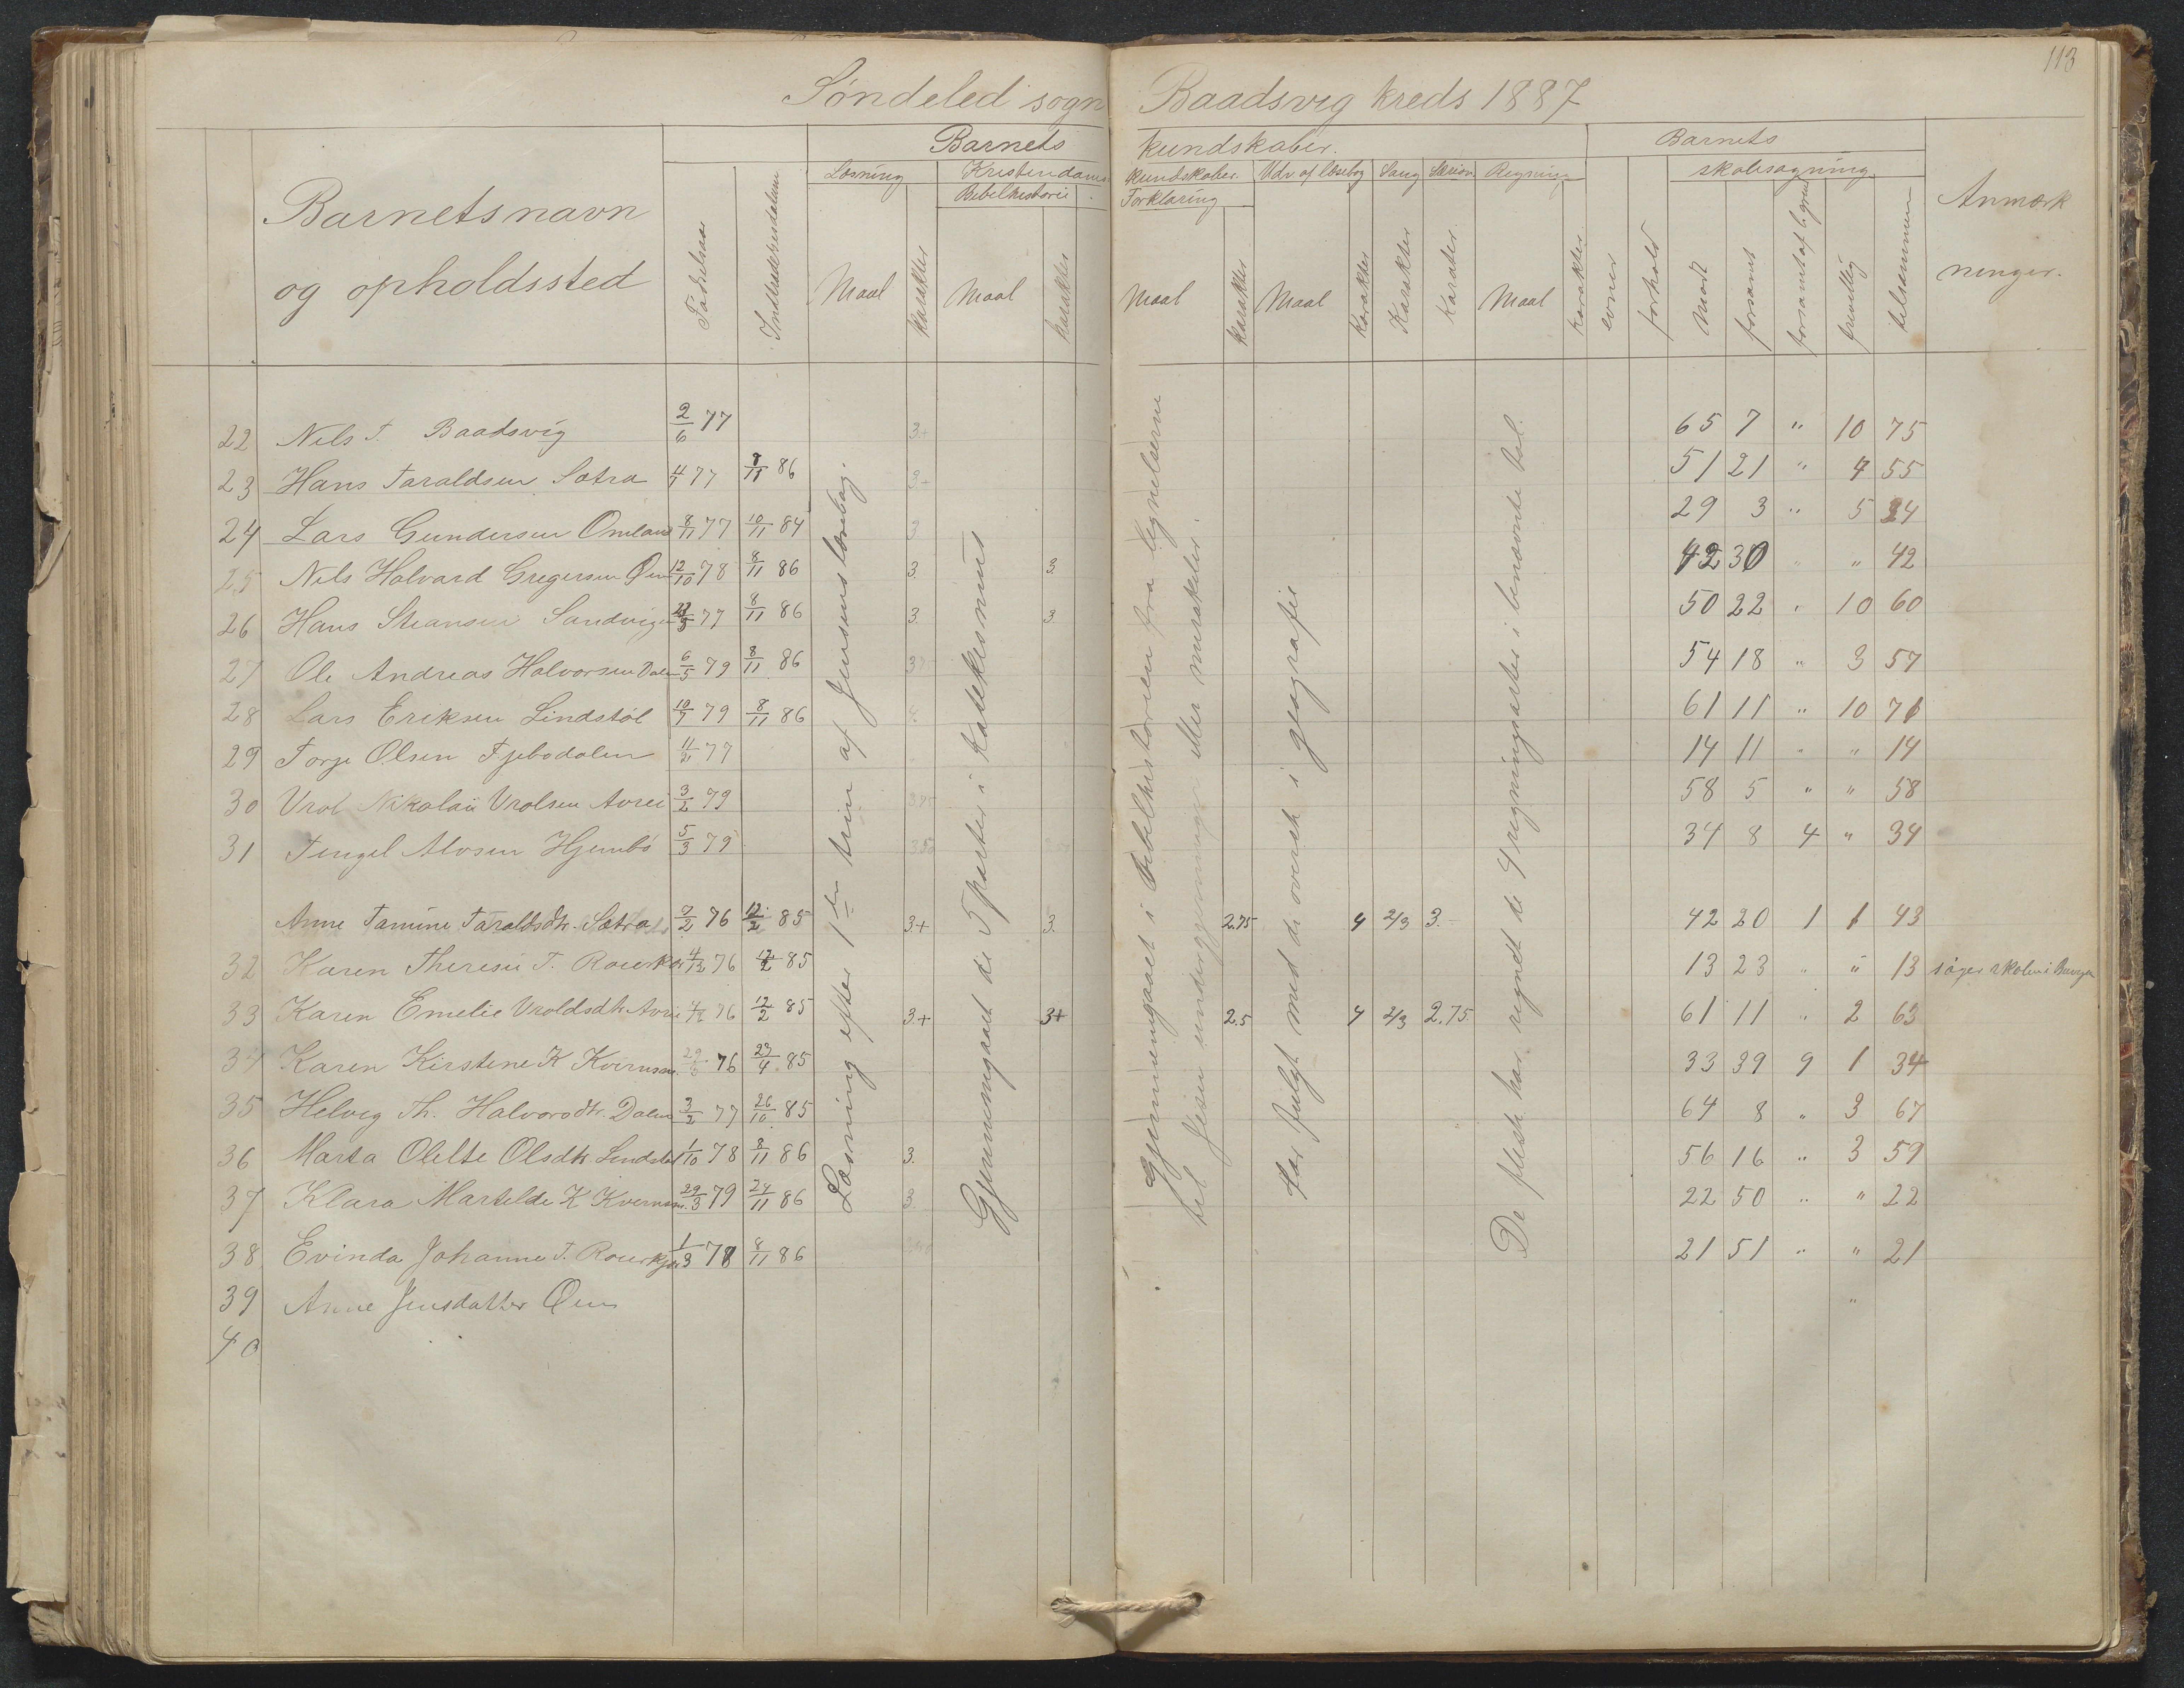 113
Søndeled sogn Baadsvig kreds 1887
Barnets kundskaber. Barnets
Læsning Kristendoms kundskaber. Udv. af læsebog Sang Skrivn. Regning skolesøgning
Bibelhistorie Forklaring
Barnets navn
og opholdssted
Fødselsaar Indtrædelsesdatum Maal karakter Maal karakter Maal karakter Maal karakter Karakter karakter Maal karakter evner forhold mødt forsømt forsømt af l. grund frivillig tilsammen
Anmærk
ninger.
22 Nils T. Baadsvig 2/6 77 3+ 65 7 " 10 75
23 Hans Taraldsen Sætra 4 77 8/11 86 3+ 51 21 " 4 55
24 Lars Gundersen Omland 8/11 77 10/11 84 3 29 3 " 5 34
25 Nils Halvard Gregersen Øen 12/10 78 8/11 86 3. 3. 42 30 " " 42
26 Hans Steansen Sandvigen 77 8/11 86 3. 3. 50 22 " 10 60
27 Ole Andreas Halvorsen Dalen 6/5 79 8/11 86 54 18 " 3 57
28 Lars Eriksen Lindstøl 10/7 79 8/11 86 61 11 " 10 71
29 Torje Olsen Fjebodalen 11/2 77 14 11 " " 14
30 Vrol Nikolaii Vrolsen Avrei 3/2 79 3.75 58 5 " " 58
31 Tengel Alvsen Hjembø 5/3 79 3.50 34 8 4 " 34
Anne Tamine Taraldsdtr. Sætra 7/2 76 12/2 85 3+ 3. 2.75 4 2/3 3. 42 20 1 1 43
32 Karen Theresie T. Rourkjær 4/12 76 12/2 85 13 23 " " 13 søger skolen i
33 Karen Emelie Vroldsdtr Avrei 76 12/2 85 3.+ 3+ 2.5 4 2/3 2.75 61 11 " 2 63
34 Karen Kirstine K Kvernsm. 76 29/4 85 33 39 9 1 34
35 Helvig Th. Halvorsdtr. Dalen 3/2 77 26/10 85 64 8 " 3 67
36 Marta Olelte Olsdtr Lindstøl 1/10 78 8/11 86 3. 56 16 " 3 59
37 Klara Martelde K Kvernsm. 29/3 79 24/11 86 3. 22 50 " " 22
38 Evinda Johanne T. Rourkjær 1/3 78 8/11 86 21 51 " " 21
39 Anne Jensdatter Øen "
40
Læsning efter 1ste trin af Jensens læsebog.
Gjennemgaaet de 5 parter i katekismus
Gjennemgaaet i Bibelhistorien fra lignelserne
til Jesu undergjerninger eller mirakeler.
Har fulgt med de øverste i geografie
De fleste har regnet de 4 regningsarter i benævnte tal.